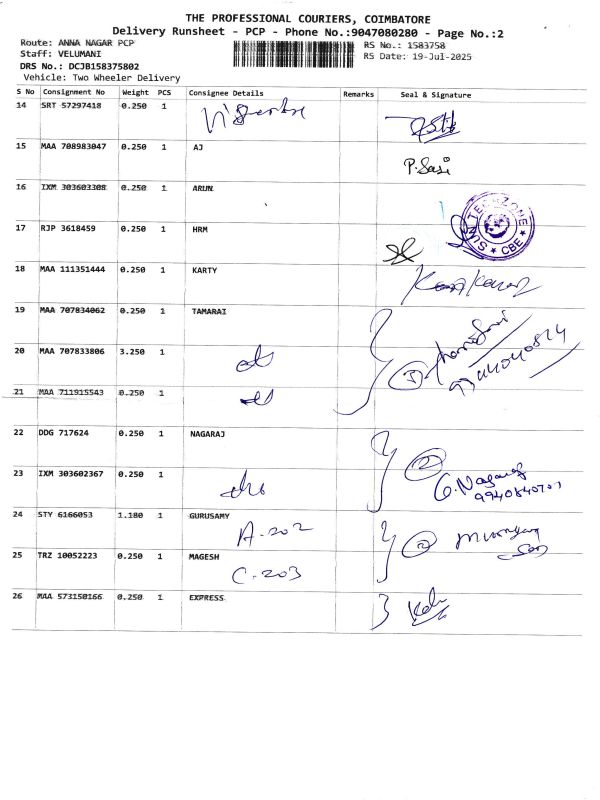 THE PROFESSIONAL COURIERS, COIMBATORE
Delivery Runsheet - PCP - Phone No.:9047080280 - Page No.:2
Route: ANNA NAGAR PCP
RS No.: 1583758
Staff: VELUMANI
RS Date: 19-Jul-2025
DRS No.: DCJB158375802
Vehicle: Two Wheeler Delivery
S No Consignment No Weight PCS Consignee Details Remarks Seal & Signature
14 SRT 57297418 0.250 1
15 MAA 708983047 0.250 1 AJ P. Sasi
16 IXM 303603308 0.250 1 ARUN
SUN TECHZONE * CBE *
17 RJP 3618459 0.250 1 HRM
18 MAA 111351444 0.250 1 KARTY
19 MAA 707834062 0.250 1 TAMARAI
20 MAA 707833806 3.250 1 3
21 MAA 711915543 0.250 1
22 DDG 717624 0.250 1 NAGARAJ 2
23 IXM 303602367 0.250 1 G. Nagaraj
24 STY 6166053 1.180 1 GURUSAMY
A-202 2
25 TRZ 10052223 0.250 1 MAGESH
C-203
26 MAA 573150166 0.250 1 EXPRESS